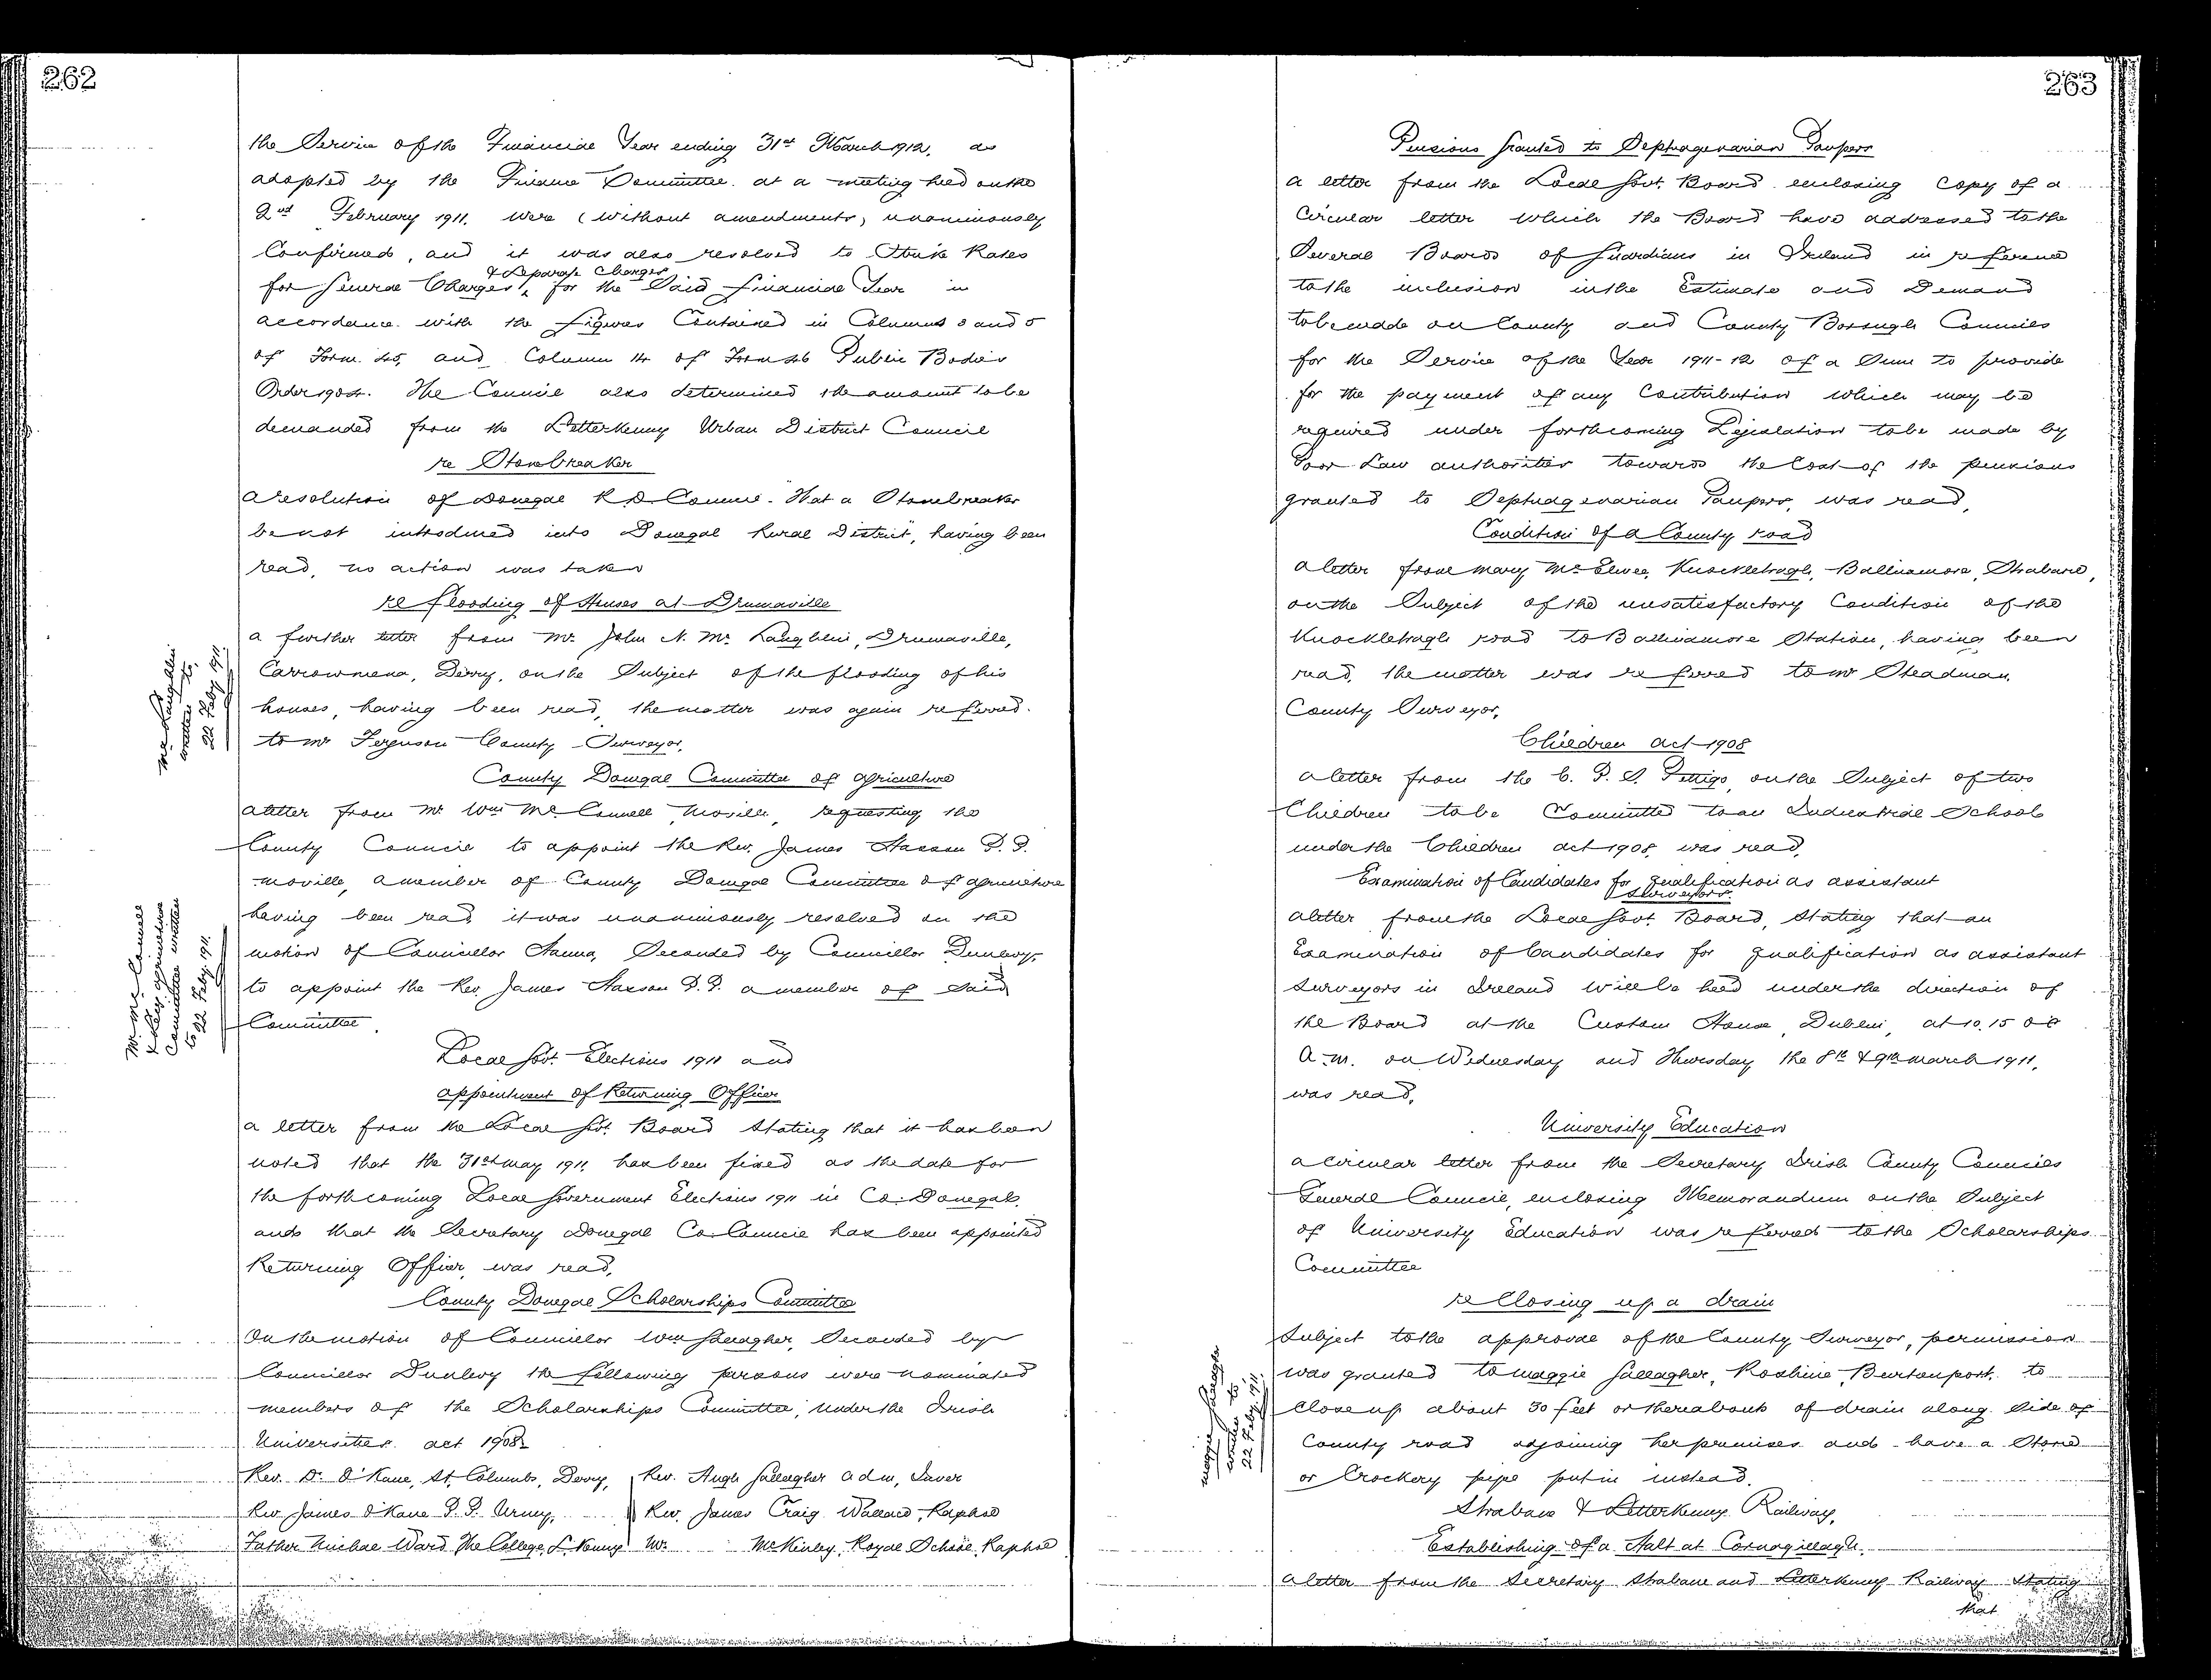 262
the Service of the Financial Year ending 31st March 1912, as
adopted by the Finance Committee at a meeting held on the
2nd February 1911, were (without amendments) unanimously
Confirmed, and it was also resolved to Strike Rates
& Separate Charges
for General Charges for the Said Financial Year in
accordance with the figures Contained in Columns 3 and 5
of Form 45, and Column 14 of Form 46 Public Bodies
Order 1904. The Council also determined the amount to be
demanded from the Letterkenny Urban District Council
re Stonebreaker
A resolution of Donegal R.D. Council. That a Stonebreaker
be not introduced into Donegal Rural District, having been
read, no action was taken
re flooding of Houses at Drumaville
a further letter from Mr. John N. Mc Laughlin, Drumaville,
Carrowmena, Derry, on the Subject of the flooding of his
houses, having been read, the matter was again referred
to Mr Ferguson County Surveyor.
Mr Laughlin
written to.
22 Feby 1911
County Donegal Committee of Agriculture
a letter from Mr. Wm Mc Connell, Moville, requesting the
County Council to appoint the Rev. James Hassan P.P.
Moville, a member of County Donegal Committee of Agriculture
having been read it was unanimously resolved on the
motion of Councillor Hanna, Seconded by Councillor Dunlevy,
to appoint the Rev. James Hassan P.P. a member of Said
Committee.
Mr McConnell
& Secy Agriculture
Committee written
to 22 Feby 1911
Local Govt. Elections 1911 and
appointment of Returning Officer
a letter from the Local Govt. Board Stating that it has been
noted that the 31st May 1911 has been fixed as the date for
the forthcoming Local Government Elections 1911 in Co. Donegal,
and that the Secretary Donegal Co. Council has been appointed
Returning Officer, was read.
County Donegal Scholarships Committee
On the motion of Councillor Wm Gallagher, Seconded by
Councillor Dunlevy the following persons were nominated
members of the Scholarships Committee, under the Irish
Universities act 1908
Rev. Dr. O'Kane, St. Columbs, Derry, Rev. Hugh Gallagher adm, Inver
Rev James O'Kane P.P. Urney, Rev. James Craig Wallace, Raphoe
Father Michael Ward The College, L.Kenny Mr. McKinley, Royal School Raphoe
263
Pensions Granted to Septuagenarian Paupers
a letter from the Local Govt. Board enclosing Copy of a
Circular letter which the Board have addressed to the
Several Boards of Guardians in Ireland in reference
to the inclusion in the Estimate and Demand
to be made on County and County Borough Councils
for the Service of the Year 1911-12 of a Sum to provide
for the payment of any Contribution which may be
required under forthcoming Legislation to be made by
Poor Law authorities towards the Cost of the pensions
granted to Septuagenarian Paupers, was read.
Condition of a County road
a letter from Mary Mc Elwee, Knockletragh, Ballinamore, Strabane,
on the Subject of the unsatisfactory Condition of the
Knockletragh road to Ballinamore Station, having been
read, the matter was referred to Mr Steadman,
County Surveyor.
Children act 1908
a letter from the C. P. S Pettigo, on the Subject of two
Children to be Committed to an Industrial School
under the Children act 1908, was read.
Examination of Candidates for qualification as assistant
Surveyors.
a letter from the Local Govt. Board, Stating that an
Examination of Candidates for qualification as assistant
Surveyors in Ireland will be held under the direction of
the Board at the Custom House Dublin, at 10.15 o'c
a.m. on Wednesday and Thursday the 8th & 9th March 1911,
was read.
University Education
a Circular letter from the Secretary Irish County Councils
General Council, enclosing Memorandum on the Subject
of University Education was referred to the Scholarships
Committee
re Closing up a drain
Subject to the approval of the County Surveyor, permission
was granted to Maggie Gallagher, Roshine, Burtonport, to
Close up about 30 feet or thereabouts of drain along side of
County road adjoining her premises and have a Stone
or Crockery pipe put in instead.
Maggie Gallagher
written to.
22 Feby 1911.
Strabane & Letterkenny Railway.
Establishing of a Halt at Cornagillagh.
a letter from the Secretary Strabane and Letterkenny Railway Stating
that